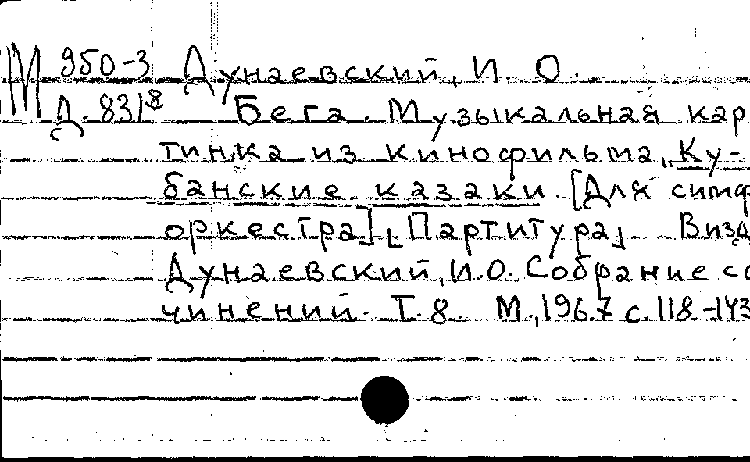 М 950-3 Дунаевский, И. О.
Д. 831 Бега. Музыкальная кар
тинка из кинофильма „Ку-
банские казаки. [Для симф
оркестра] [Партитура] В изд
Дунаевский, И.О. Собрание со
чинений. Т. 8. М., 1967 с. 118-143